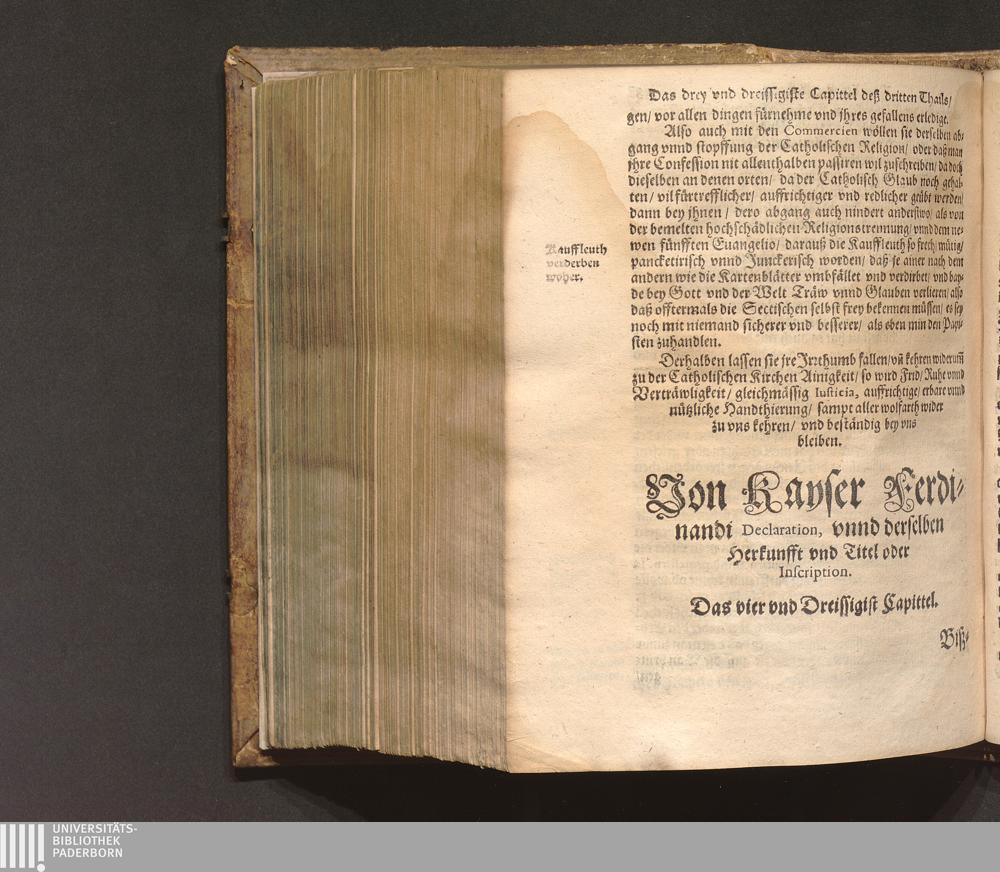 Das drey vnd dreissigiste Capittel deß dritten Thails/
gen/ vor allen dingen fürnehme vnd jhres gefallens erledige.
Also auch mit den Commercien wöllen sie derselben ab-
gang vnnd stopffung der Catholischen Religion/ oder daß man
jhre Confession nit allenthalben passiren wil zuschreiben/ da doch
dieselben an denen orten/ da der Catholisch Glaub noch gehal-
ten/ vil fürtrefflicher/ auffrichtiger vnd redlicher geübt werden/
dann bey jhnen/ dero abgang auch nindert anderstwo/ als von
der bemelten hochschädlichen Religionstrennung/ vnnd dem ne-
wen fünfften Euangelio/ darauß die Kauffleuth so frech/ mütig/
pancketirisch vnnd Junckerisch worden/ daß je ainer nach dem
andern wie die Kartenblätter vmbfället vnd verdirbet/ vnd bay-
de bey Gott vnd der Welt Träw vnnd Glauben verlieren/ also
daß offtermals die Sectischen selbst frey bekennen müssen/ es sey
noch mit niemand sicherer vnd besserer/ als eben mit den Papi-
sten zuhandlen.
Kauffleuth
verderben
woher.
Derhalben lassen sie jre Jrrthumb fallen/ vñ kehren widerumm
zu der Catholischen Kirchen Ainigkeit/ so wird Frid/ Ruhe vnnd
Verträwligkeit/ gleichmässig Iusticia, auffrichtige/ erbare vnnd
nützliche Handthierung/ sampt aller wolfarth wider
zu vns kehren/ vnd beständig bey vns
bleiben.
Von Kayser Ferdi-
nandi Declaration, vnnd derselben
Herkunfft vnd Titel oder
Inscription.
Das vier vnd Dreissigist Capittel.
Biß-
UNIVERSITÄTS-
BIBLIOTHEK
PADERBORN